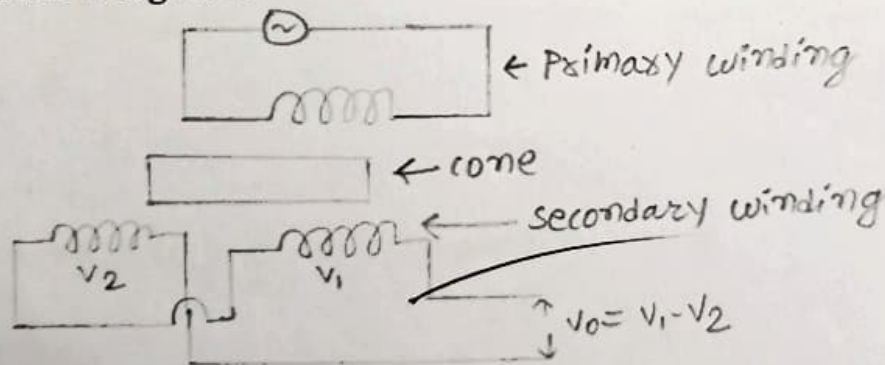 ~
← Primary winding
← cone
← secondary winding
V2
V1
V0 = V1 - V2